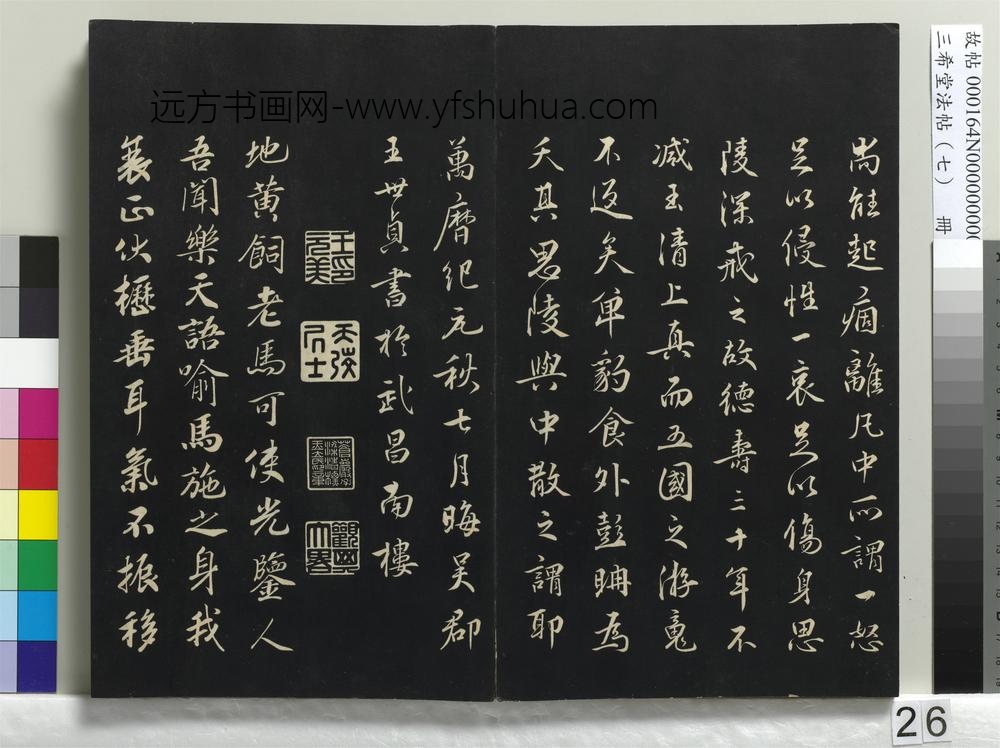 尚能起痼離凡中所謂一怒
足以侵性一哀足以傷身思
陵深戒之故德壽三十年不
减玉清上真而五國之游魂
不返矣單豹食外彭聃為
夭其思陵與中散之謂耶
萬曆紀元秋七月晦吳郡
王世貞書於武昌南樓
王印元美
天弢居士
地黄飼老馬可使光鑒人
吾聞樂天語喻馬施之身我
衰正伏櫪垂耳氣不振移
远方书画网-www.yfshuhua.com
故帖 000164N00000000
三希堂法帖（七） 冊
26